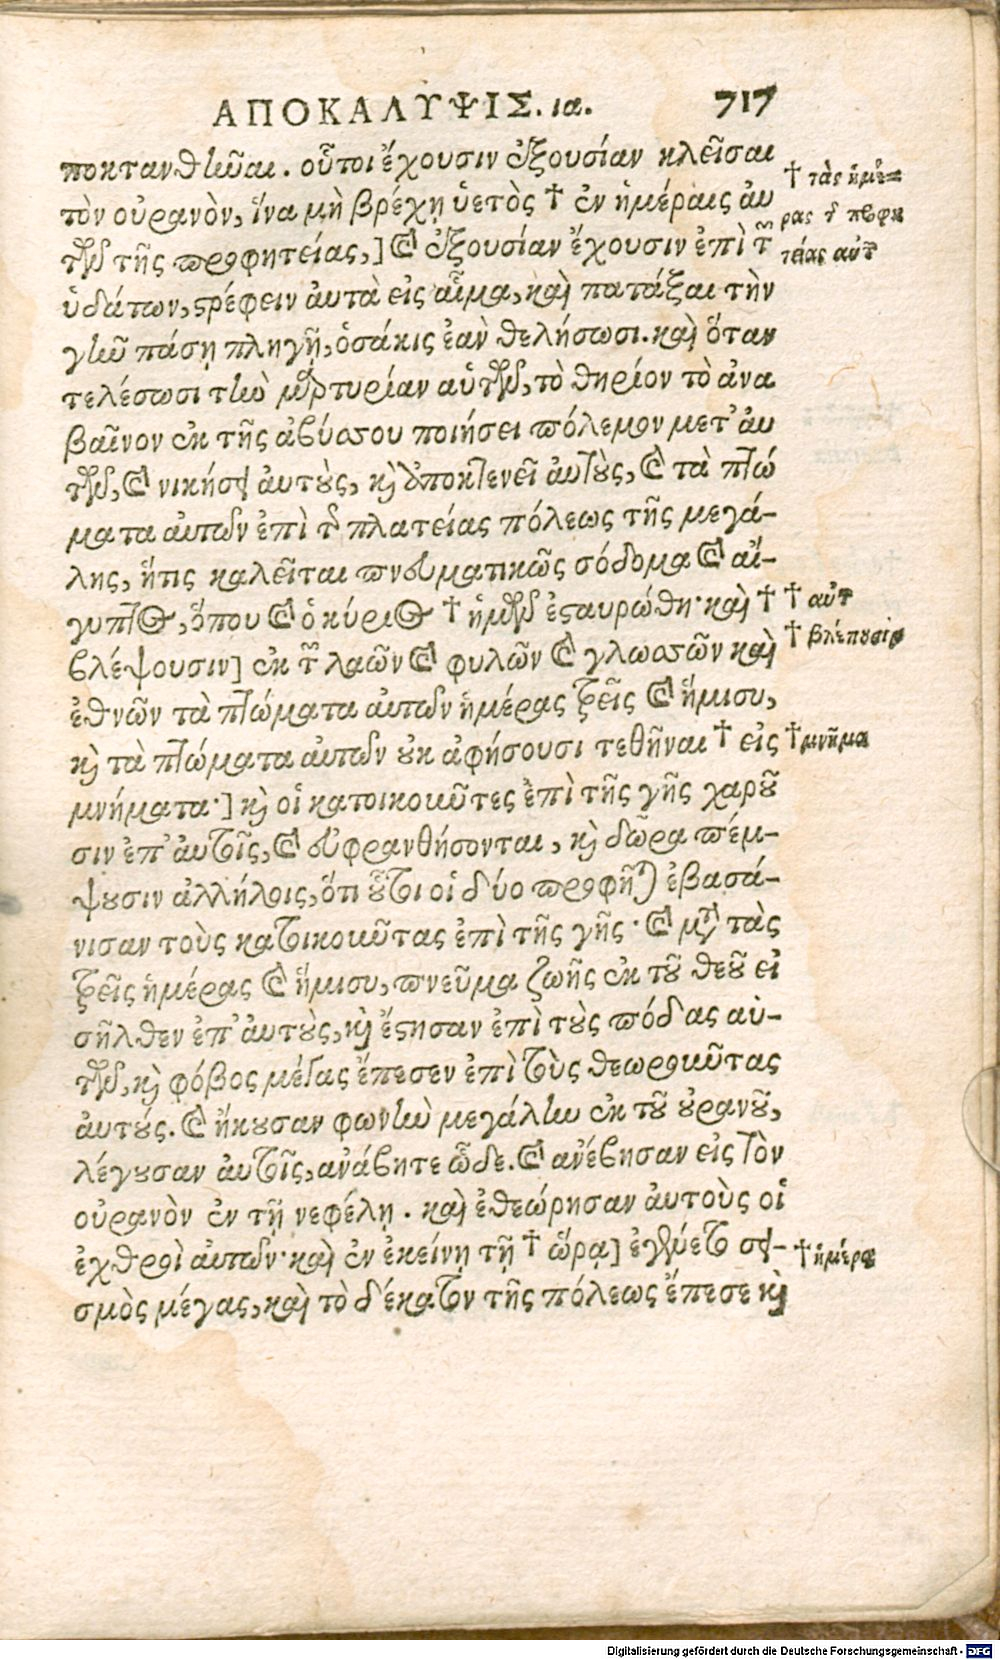 ΑΠΟΚΑΛΥΨΙΣ. ια. 717
ποκτανθῆναι. οὗτοι ἔχουσιν ἐξουσίαν κλεῖσαι
τὸν οὐρανὸν, ἵνα μὴ βρέχῃ ὑετὸς † ἐν ἡμέραις ἀυ
τῶν τῆς προφητείας,] καὶ ἐξουσίαν ἔχουσιν ἐπὶ τῶν
ὑδάτων, στρέφειν ἀυτὰ εἰς αἷμα, καὶ πατάξαι τὴν
γῆν πάσῃ πληγῇ, ὁσάκις ἐὰν θελήσωσι. καὶ ὅταν
τελέσωσι τὴν μαρτυρίαν αὐτῶν, τὸ θηρίον τὸ ἀνα
βαῖνον ἐκ τῆς ἀβύσσου ποιήσει πόλεμον μετ' ἀυ
τῶν, καὶ νικήσει ἀυτοὺς, καὶ ἀποκτενεῖ ἀυτοὺς, καὶ τὰ πτώ
ματα ἀυτῶν ἐπὶ τῆς πλατείας πόλεως τῆς μεγά-
λης, ἥτις καλεῖται πνευματικῶς σόδομα καὶ αἴ-
γυπτος, ὅπου καὶ ὁ κύριος † ἡμῶν ἐσταυρώθη· καὶ †
βλέψουσιν] ἐκ τῶν λαῶν καὶ φυλῶν καὶ γλωσσῶν καὶ
ἐθνῶν τὰ πτώματα ἀυτῶν ἡμέρας τρεῖς καὶ ἥμισυ,
καὶ τὰ πτώματα ἀυτῶν οὐκ ἀφήσουσι τεθῆναι † εἰς
μνήματα·] καὶ οἱ κατοικοῦντες ἐπὶ τῆς γῆς χαροῦ
σιν ἐπ' ἀυτοῖς, καὶ εὐφρανθήσονται, καὶ δῶρα πέμ-
ψουσιν ἀλλήλοις, ὅτι οὗτοι οἱ δύο προφῆται ἐβασά-
νισαν τοὺς κατοικοῦντας ἐπὶ τῆς γῆς· καὶ μετὰ τὰς
τρεῖς ἡμέρας καὶ ἥμισυ, πνεῦμα ζωῆς ἐκ τοῦ θεοῦ εἰ
σῆλθεν ἐπ' ἀυτοὺς, καὶ ἔστησαν ἐπὶ τοὺς πόδας αὐ-
τῶν, καὶ φόβος μέγας ἔπεσεν ἐπὶ τοὺς θεωροῦντας
ἀυτούς. καὶ ἤκουσαν φωνὴν μεγάλην ἐκ τοῦ οὐρανοῦ,
λέγουσαν ἀυτοῖς, ἀνάβητε ὧδε. καὶ ἀνέβησαν εἰς τὸν
οὐρανὸν ἐν τῇ νεφέλῃ. καὶ ἐθεώρησαν ἀυτοὺς οἱ
ἐχθροὶ ἀυτῶν· καὶ ἐν ἐκείνῃ τῇ † ὥρᾳ] ἐγένετο σει-
σμὸς μέγας, καὶ τὸ δέκατον τῆς πόλεως ἔπεσε καὶ
† τὰς ἡμέ-
ρας τῆς προφη
τείας αὐτῶν
† αὐτῶν
† βλέπουσιν
† μνῆμα
† ἡμέρᾳ
Digitalisierung gefördert durch die Deutsche Forschungsgemeinschaft - DFG